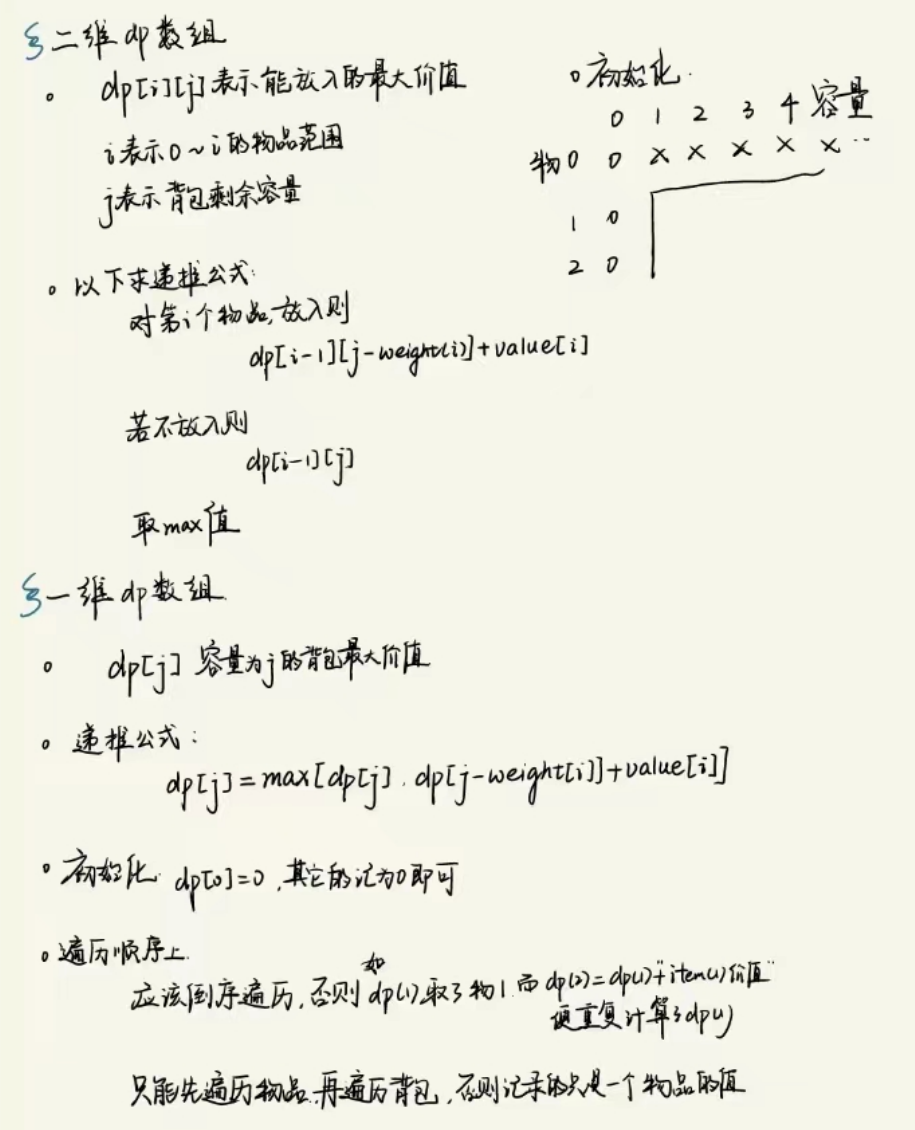 二维dp数组
dp[i][j]表示能放入的最大价值
i表示0~i的物品范围
j表示背包剩余容量
初始化.
0 1 2 3 4 容量
物0 0 × × × × × ··
1 0
2 0
以下求递推公式:
对第i个物品,放入则
dp[i-1][j-weight(i)]+value[i]
若不放入则
dp[i-1][j]
取max值
一维dp数组
dp[j] 容量为j的背包最大价值
递推公式:
dp[j]=max[dp[j], dp[j-weight[i]]+value[i]]
初始化. dp[0]=0,其它的记为0即可
遍历顺序上.
如
应该倒序遍历,否则dp(1)取了物1.而dp(2)=dp(1)+"item(1)价值"
便重复计算了dp(1)
只能先遍历物品.再遍历背包,否则记录的只是一个物品的值